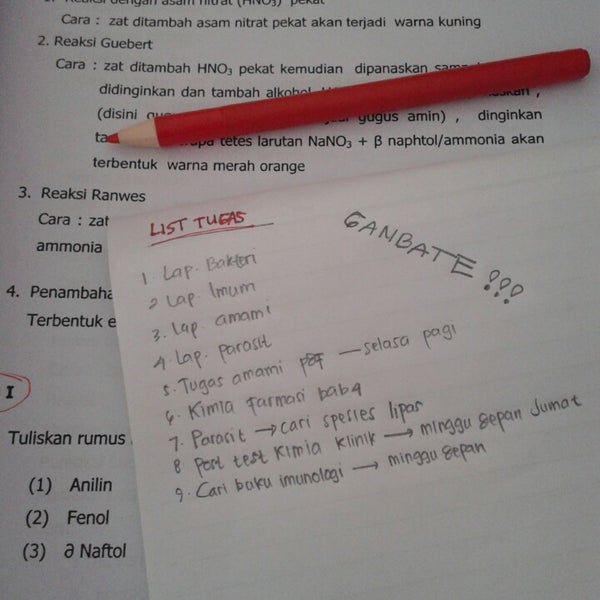 1. Reaksi dengan asam nitrat (HNO₃) pekat
Cara : zat ditambah asam nitrat pekat akan terjadi warna kuning
2. Reaksi Guebert
Cara : zat ditambah HNO₃ pekat kemudian dipanaskan
didinginkan dan tambah alkohol
(disini gugus amin) , dinginkan
tetes larutan NaNO₃ + β naphtol/ammonia akan
terbentuk warna merah orange
3. Reaksi Ranwes
Cara : zat
ammonia
4. Penambaha
Terbentuk e
I
Tuliskan rumus
(1) Anilin
(2) Fenol
(3) ∂ Naftol
LIST TUGAS
GANBATE !!!
1. Lap. Bakteri
2. Lap. Imum
3. Lap. amami
4. Lap. parasit
5. Tugas amami PDF — selasa pagi
6. Kimia farmasi bab 4
7. Parasit → cari spesies lipas
8 Post test Kimia Klinik → minggu depan Jumat
9. Cari buku imunologi → minggu depan